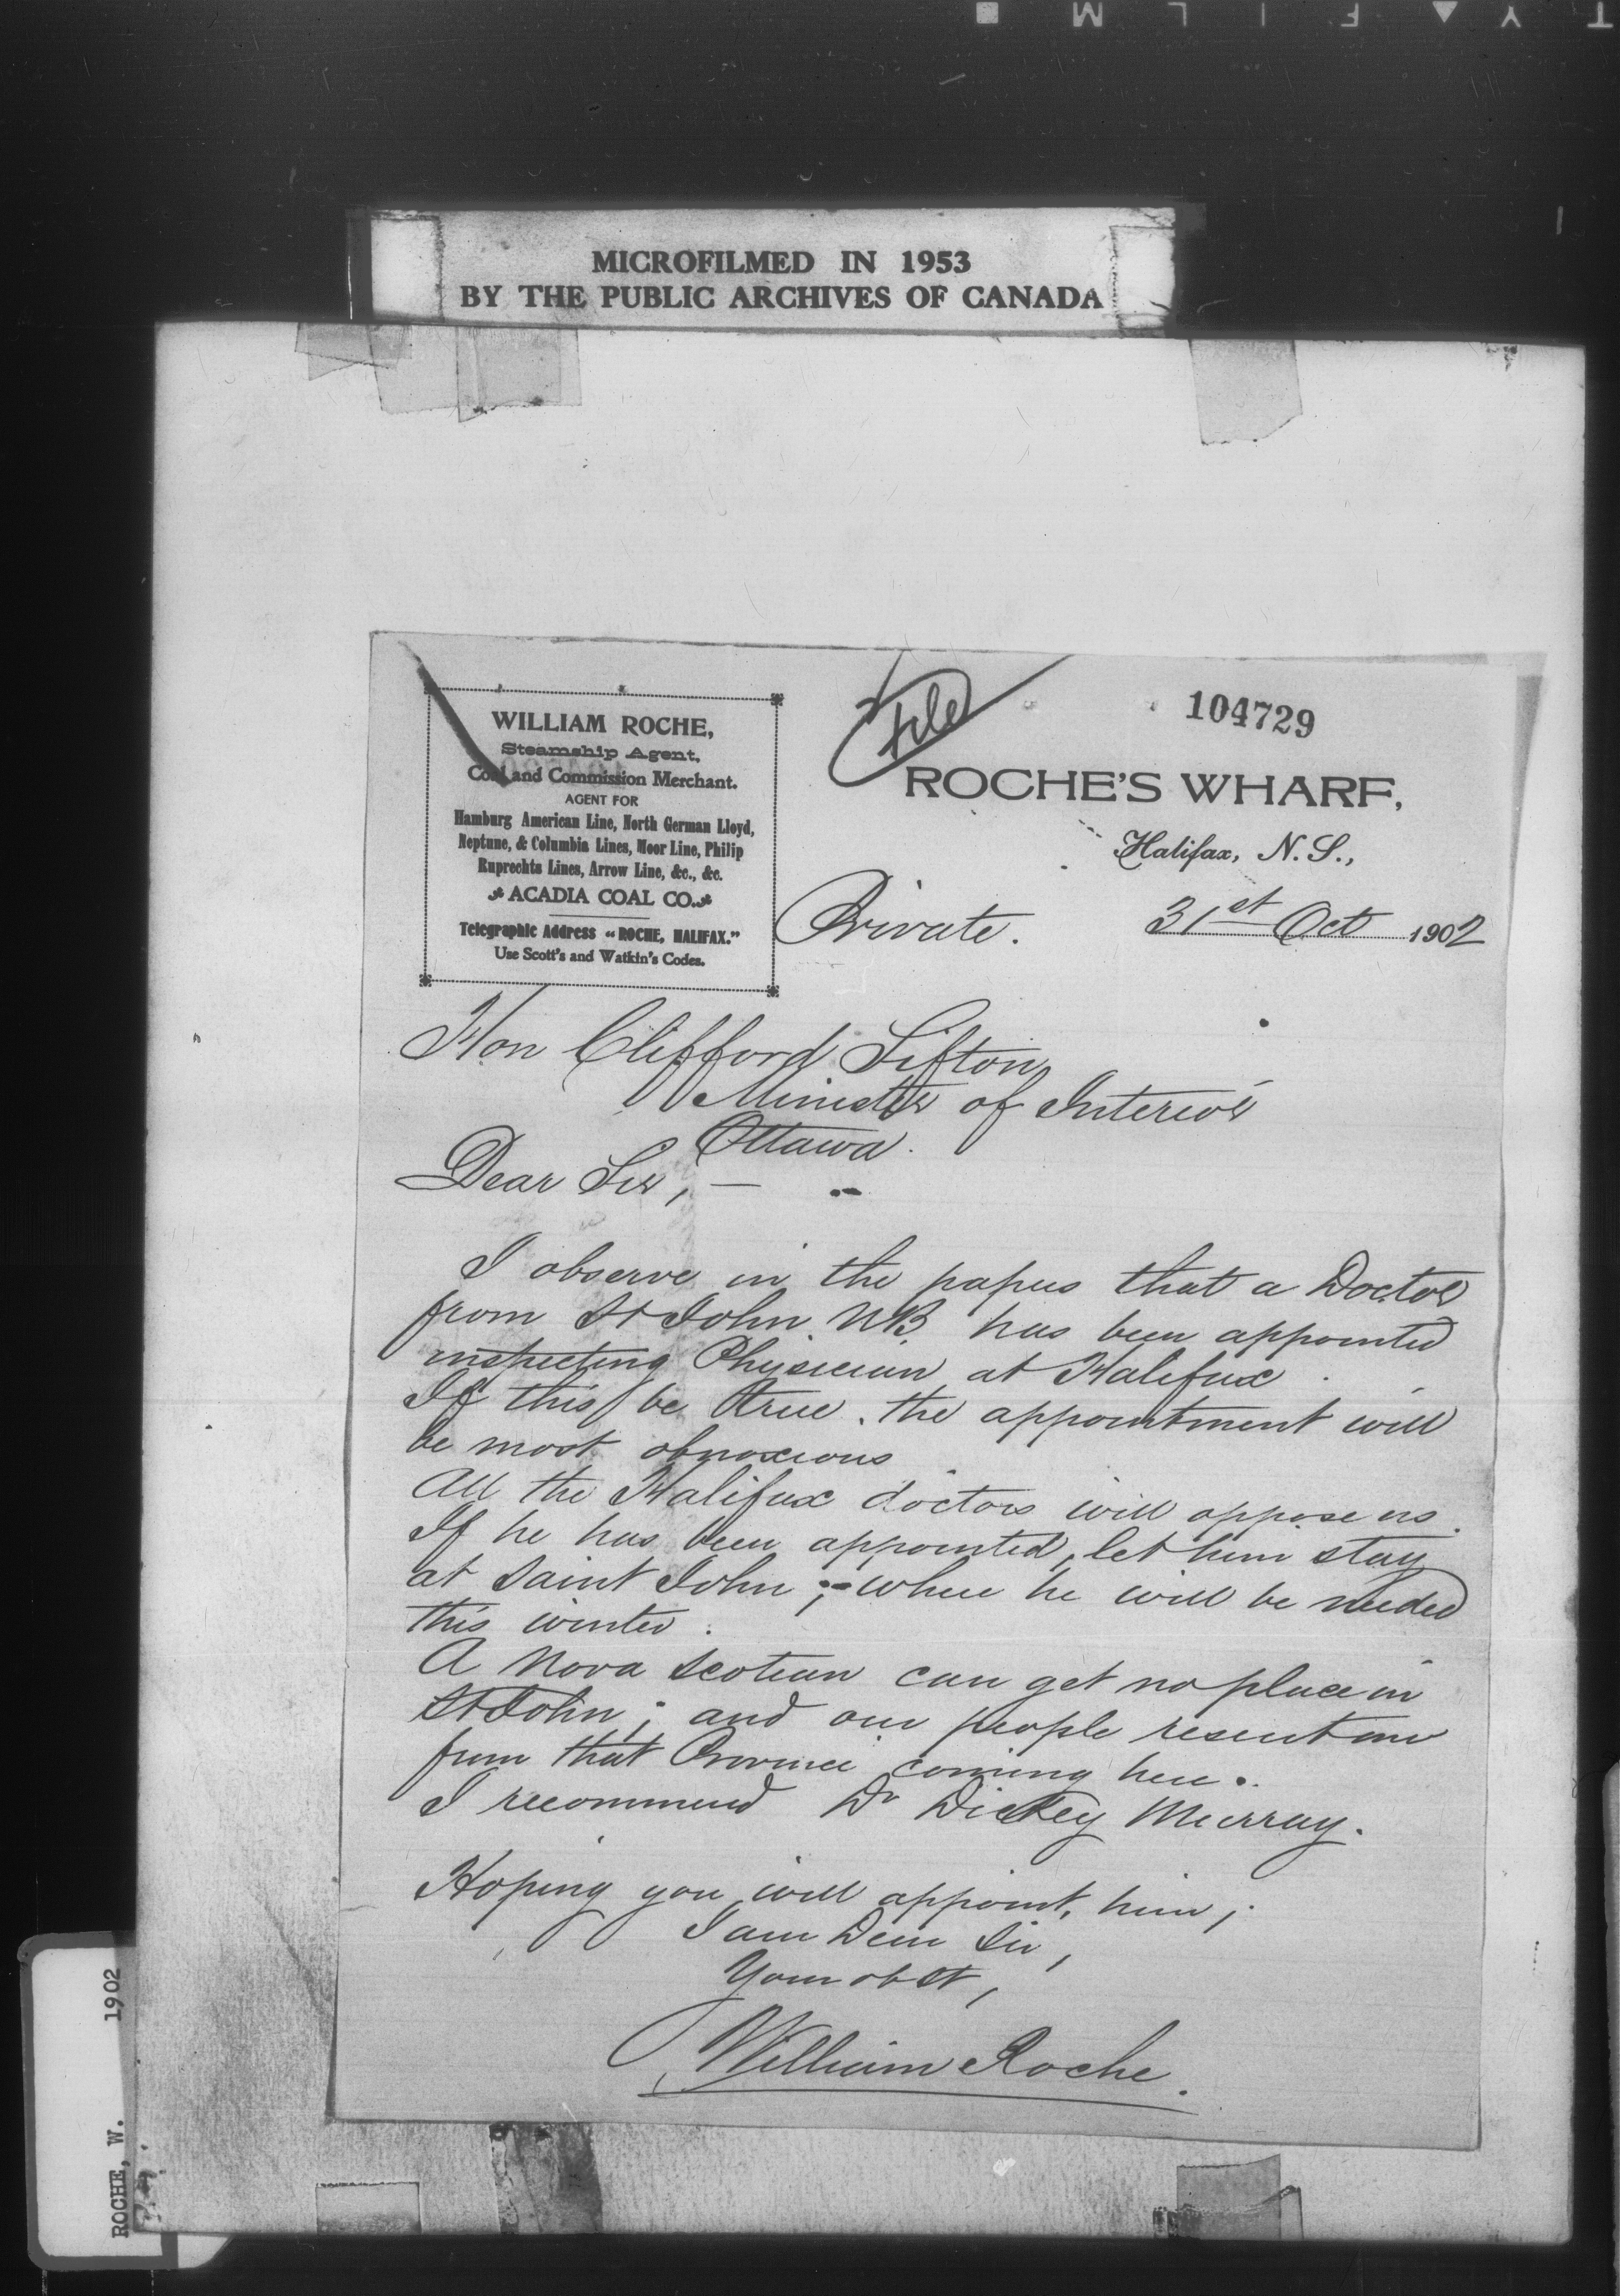 MICROFILMED IN 1953
BY THE PUBLIC ARCHIVES OF CANADA
WILLIAM ROCHE,
Steamship Agent,
Coal and Commission Merchant.
AGENT FOR
Hamburg American Line, North German Lloyd,
Neptune, & Columbia Lines, Moor Line, Philip
Ruprechts Lines, Arrow Line, &c., &c.
ACADIA COAL CO.
Telegraphic Address "ROCHE, HALIFAX."
Use Scott's and Watkin's Codes.
File
104729
ROCHE'S WHARF,
Halifax, N. S.,
Private. 31st Oct 1902
Hon Clifford Sifton
Minister of Interior
Ottawa.
Dear Sir, —
I observe in the papers that a Doctor
from St John N.B. has been appointed
inspecting Physician at Halifax.
If this be true, the appointment will
be most obnoxious
All the Halifax doctors will oppose us.
If he has been appointed, let him stay
at Saint John;- where he will be needed
this winter.
A Nova Scotian can get no place in
St John; and our people resent one
from that Province coming here.
I recommend Dr Dickey Murray.
Hoping you will appoint him,
I am Dear Sir,
Your obt St,
William Roche.
ROCHE, W. 1902